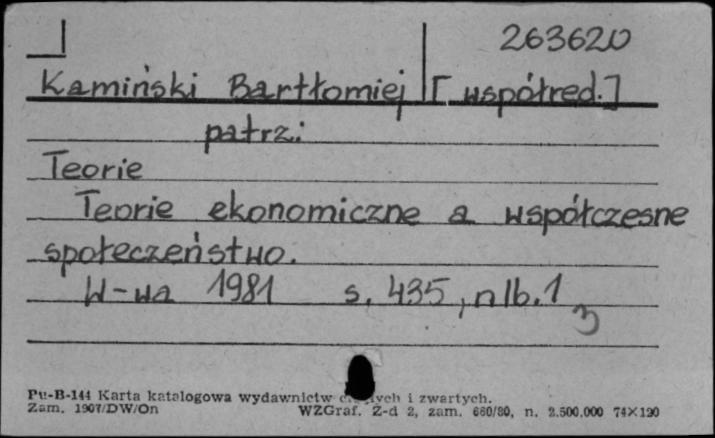 263620
Kamiński Bartłomiej [współred.]
patrz:
Teorie
Teorie ekonomiczne a współczesne
społeczeństwo.
W-wa 1981 s. 435, nlb. 1
3
Pu-B-144 Karta katalogowa wydawnictw i zwartych.
Zam. 1907/DW/On WZGraf. Z-d 2, zam. 660/80, n. 2.500.000 74×120